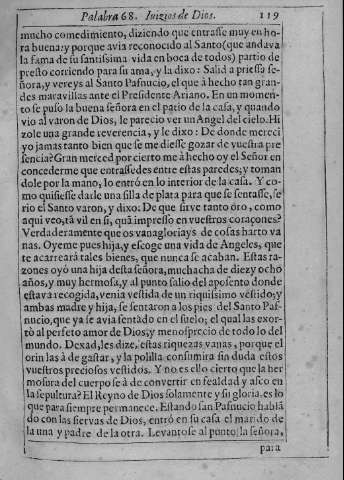 Palabra 68. Iuizios de Dios. 119
mucho comedimiento, diziendo que entrasse muy en ho-
ra buena: y porque avia reconocido al Santo (que andava
la fama de su santissima vida en boca de todos) partio de
presto corriendo para su ama, y la dixo: Salid a priessa se-
ñora, y vereys al Santo Pafnucio, el que à hecho tan gran-
des maravillas ante el Presidente Ariano. En un momen-
to se puso la buena señora en el patio de la casa, y quando
vio al varon de Dios, le parecio ver un Angel del cielo. Hi
zole una grande reverencia, y le dixo: De donde mereci
yo jamas tanto bien que se me diesse gozar de vuestra pre
sencia? Gran merced por cierto me à hecho oy el Señor en
concederme que entrassedes entre estas paredes; y toman
dole por la mano, lo entrò en lo interior de la casa. Y co-
mo quisiesse darle una silla de plata para que se sentasse, se
rio el Santo varon, y dixo: De que sirve tanto oro, como
aqui veo, tã vil en si, quã impresso en vuestros coraçones?
Verdaderamente que os vanagloriays de cosas harto va
nas. Oyeme pues hija, y escoge una vida de Angeles, que
te acarrearà tales bienes, que nunca se acaban. Estas ra-
zones oyó una hija desta señora, muchacha de diez y ocho
años, y muy hermosa, y al punto salio del aposento donde
estava recogida, venia vestida de un riquissimo vestido; y
ambas madre y hija, se sentaron a los pies del Santo Paf-
nucio, que ya se avia sentado en el suelo; el qual las exor-
tò al perfeto amor de Dios, y menosprecio de todo lo del
mundo. Dexad, les dize, estas riquezas vanas, porque el
orin las à de gastar, y la polilla consumira sin duda estos
vuestros preciosos vestidos. Y no es ello cierto que la her
mosura del cuerpo se à de convertir en fealdad y asco en
la sepultura? El Reyno de Dios solamente y su gloria es lo
que para siempre permanece. Estando san Pafnucio hablã
do con las siervas de Dios, entrò en su casa el marido de
la una y padre de la otra. Levantose al punto la señora,
para